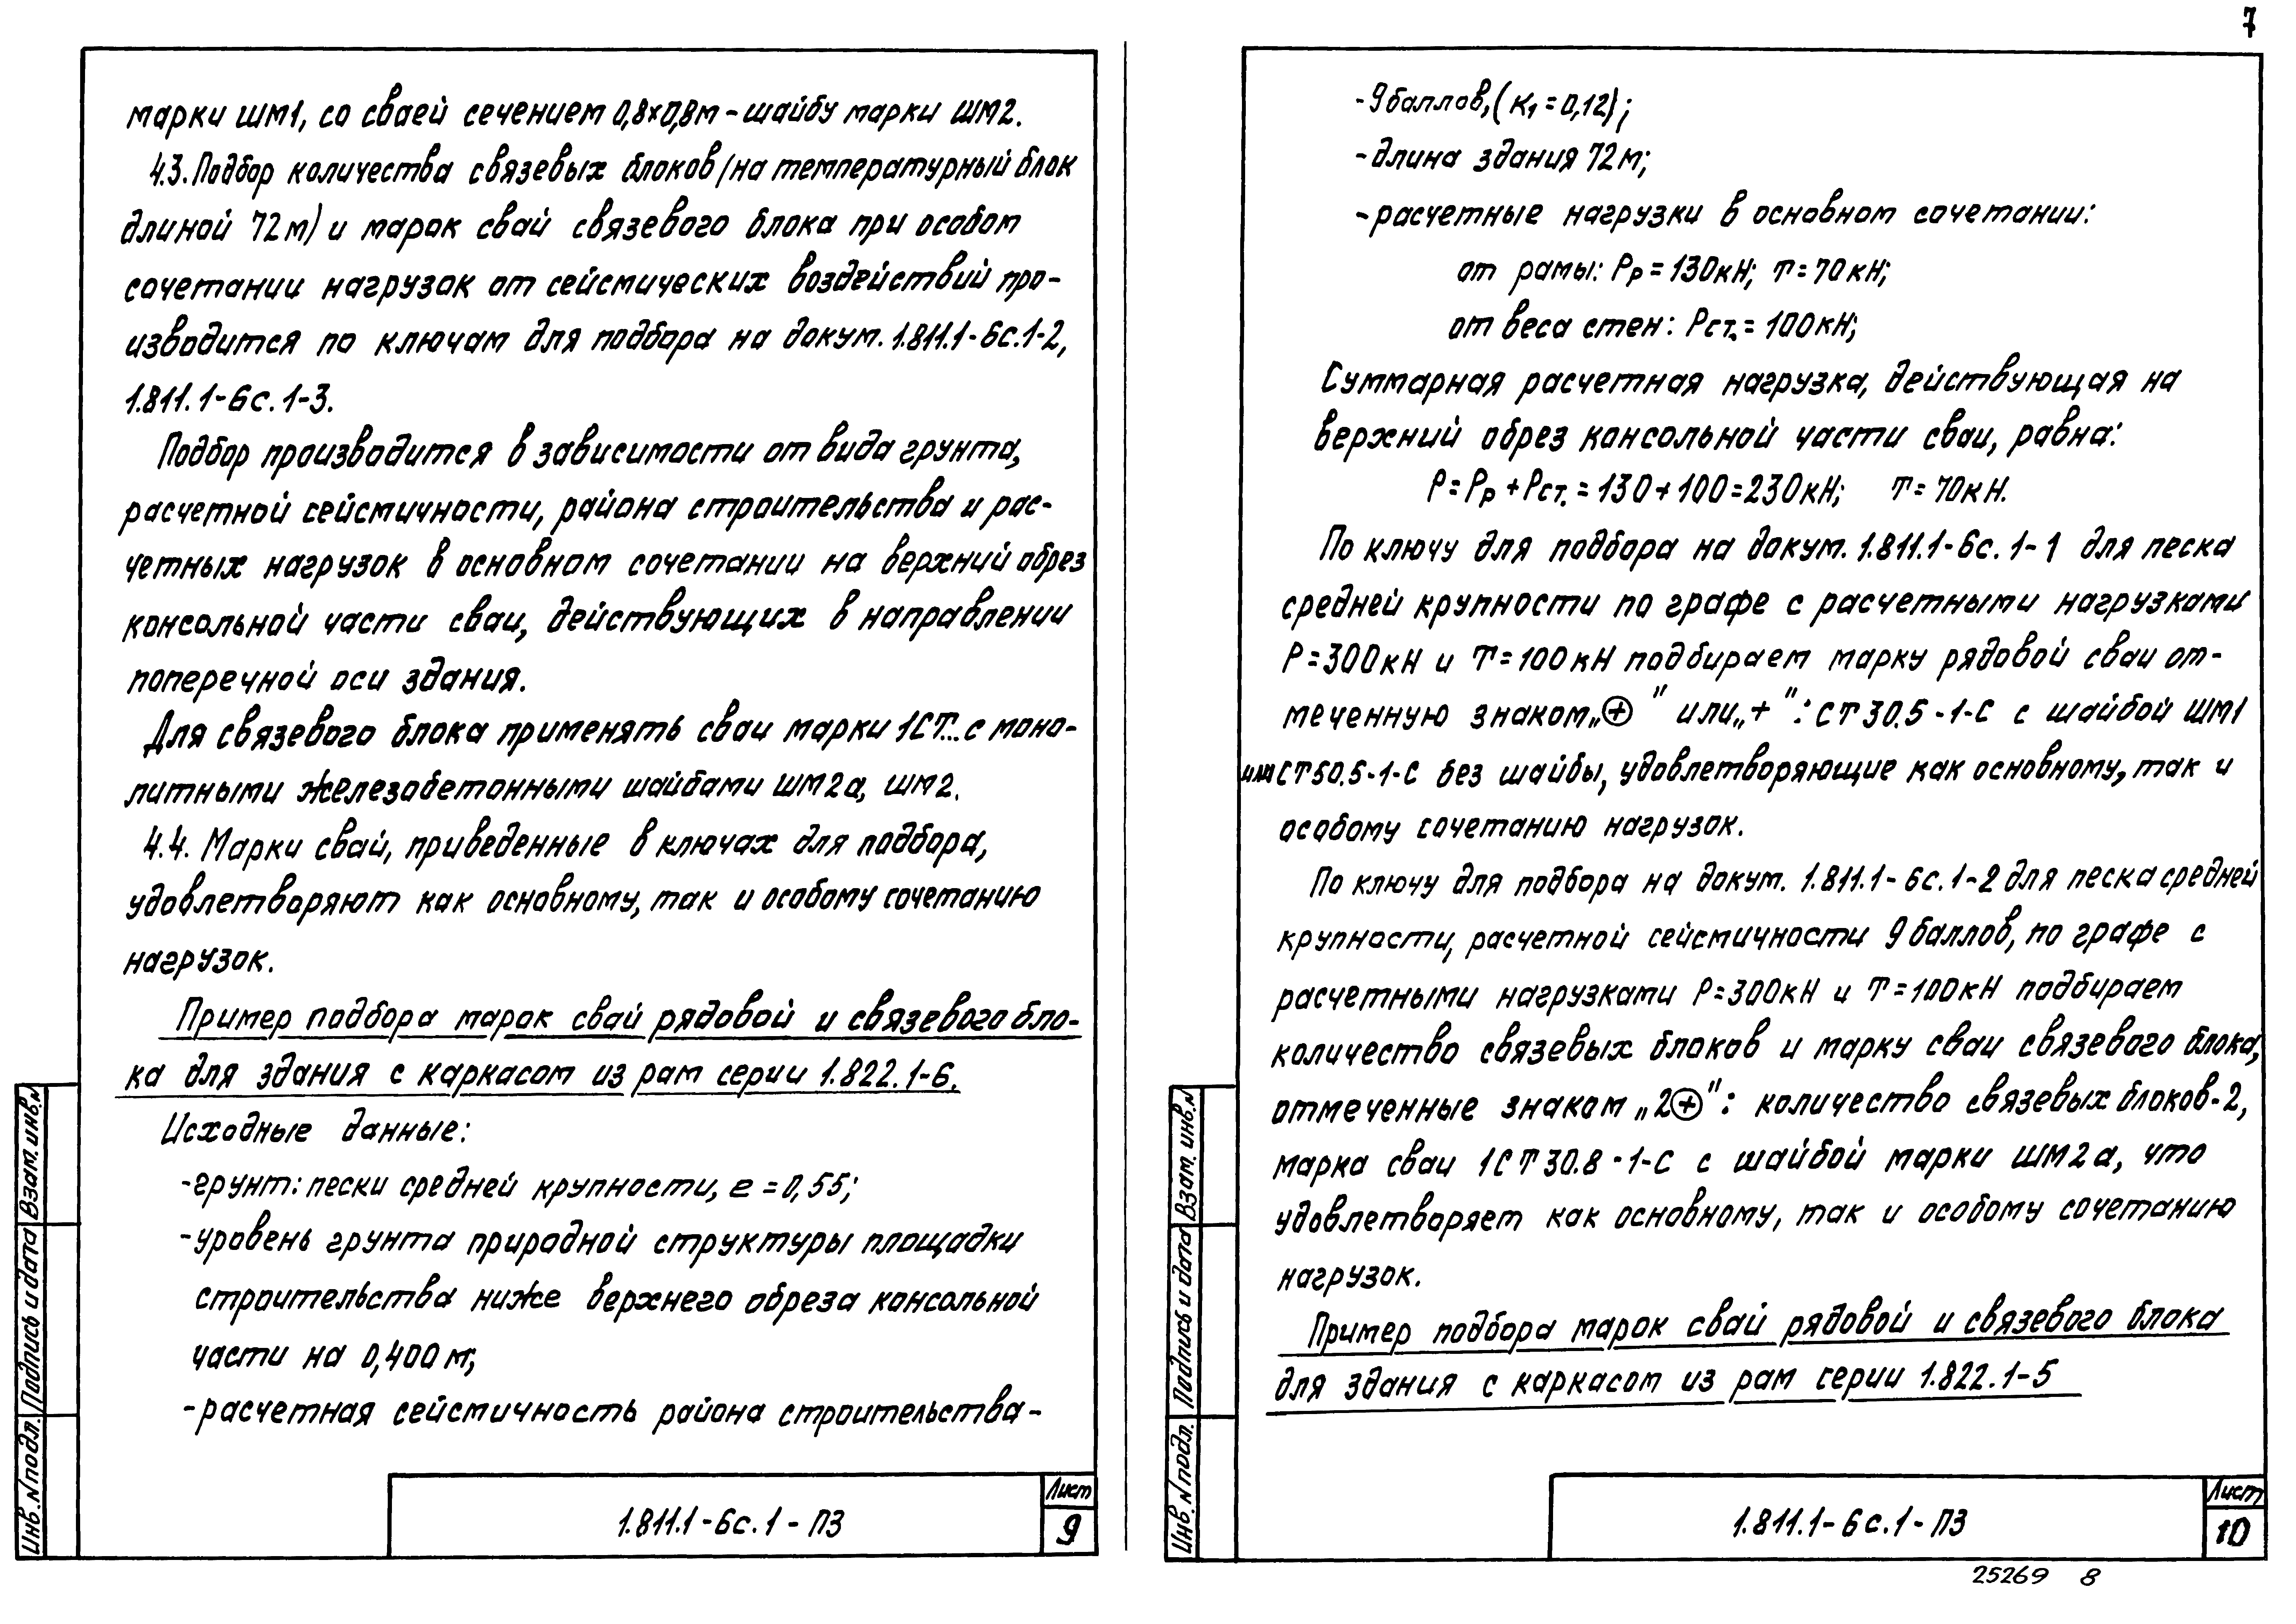 7
марки ШМ1, со сваей сечением 0,8×0,8м – шайбу марки ШМ2.
4.3. Подбор количества связевых блоков (на температурный блок
длиной 72м) и марок свай связевого блока при особом
сочетании нагрузок от сейсмических воздействий про-
изводится по ключам для подбора на докум. 1.811.1-6с.1-2,
1.811.1-6с.1-3.
Подбор производится в зависимости от вида грунта,
расчетной сейсмичности, района строительства и рас-
четных нагрузок в основном сочетании на верхний обрез
консольной части сваи, действующих в направлении
поперечной оси здания.
Для связевого блока применять сваи марки 1СТ... с моно-
литными железобетонными шайбами ШМ2а, ШМ2.
4.4. Марки свай, приведенные в ключах для подбора,
удовлетворяют как основному, так и особому сочетанию
нагрузок.
Пример подбора марок свай рядовой и связевого бло-
ка для здания с каркасом из рам серии 1.822.1-6.
Исходные данные:
-грунт: пески средней крупности, е = 0,55;
-уровень грунта природной структуры площадки
строительства ниже верхнего обреза консольной
части на 0,400м;
-расчетная сейсмичность района строительства-
Инв.N подл. Подпись и дата Взам. инв.N
1.811.1-6с.1-ПЗ
Лист
9
-9баллов, (К₁=0,12);
-длина здания 72м;
-расчетные нагрузки в основном сочетании:
от рамы: Рр=130кН; Т=70кН;
от веса стен: Рст.=100кН;
Суммарная расчетная нагрузка, действующая на
верхний обрез консольной части сваи, равна:
Р=Рр+Рст.=130+100=230кН; Т=70кН.
По ключу для подбора на докум. 1.811.1-6с.1-1 для песка
средней крупности по графе с расчетными нагрузками
Р=300кН и Т=100кН подбираем марку рядовой сваи от-
меченную знаком „⊕" или „+": СТ30.5-1-С с шайбой ШМ1
или СТ50.5-1-С без шайбы, удовлетворяющие как основному, так и
особому сочетанию нагрузок.
По ключу для подбора на докум. 1.811.1-6с.1-2 для песка средней
крупности, расчетной сейсмичности 9баллов, по графе с
расчетными нагрузками Р=300кН и Т=100кН подбираем
количество связевых блоков и марку сваи связевого блока,
отмеченные знаком „2⊕": количество связевых блоков-2,
марка сваи 1СТ30.8-1-С с шайбой марки ШМ2а, что
удовлетворяет как основному, так и особому сочетанию
нагрузок.
Пример подбора марок свай рядовой и связевого блока
для здания с каркасом из рам серии 1.822.1-5
Инв.N подл. Подпись и дата Взам. инв.N
1.811.1-6с.1-ПЗ
Лист
10
25269 8